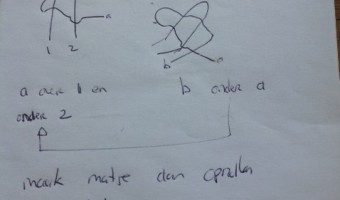 a
1 2
b a
a over 1 en b onder a
onder 2
maak matje dan oprollen